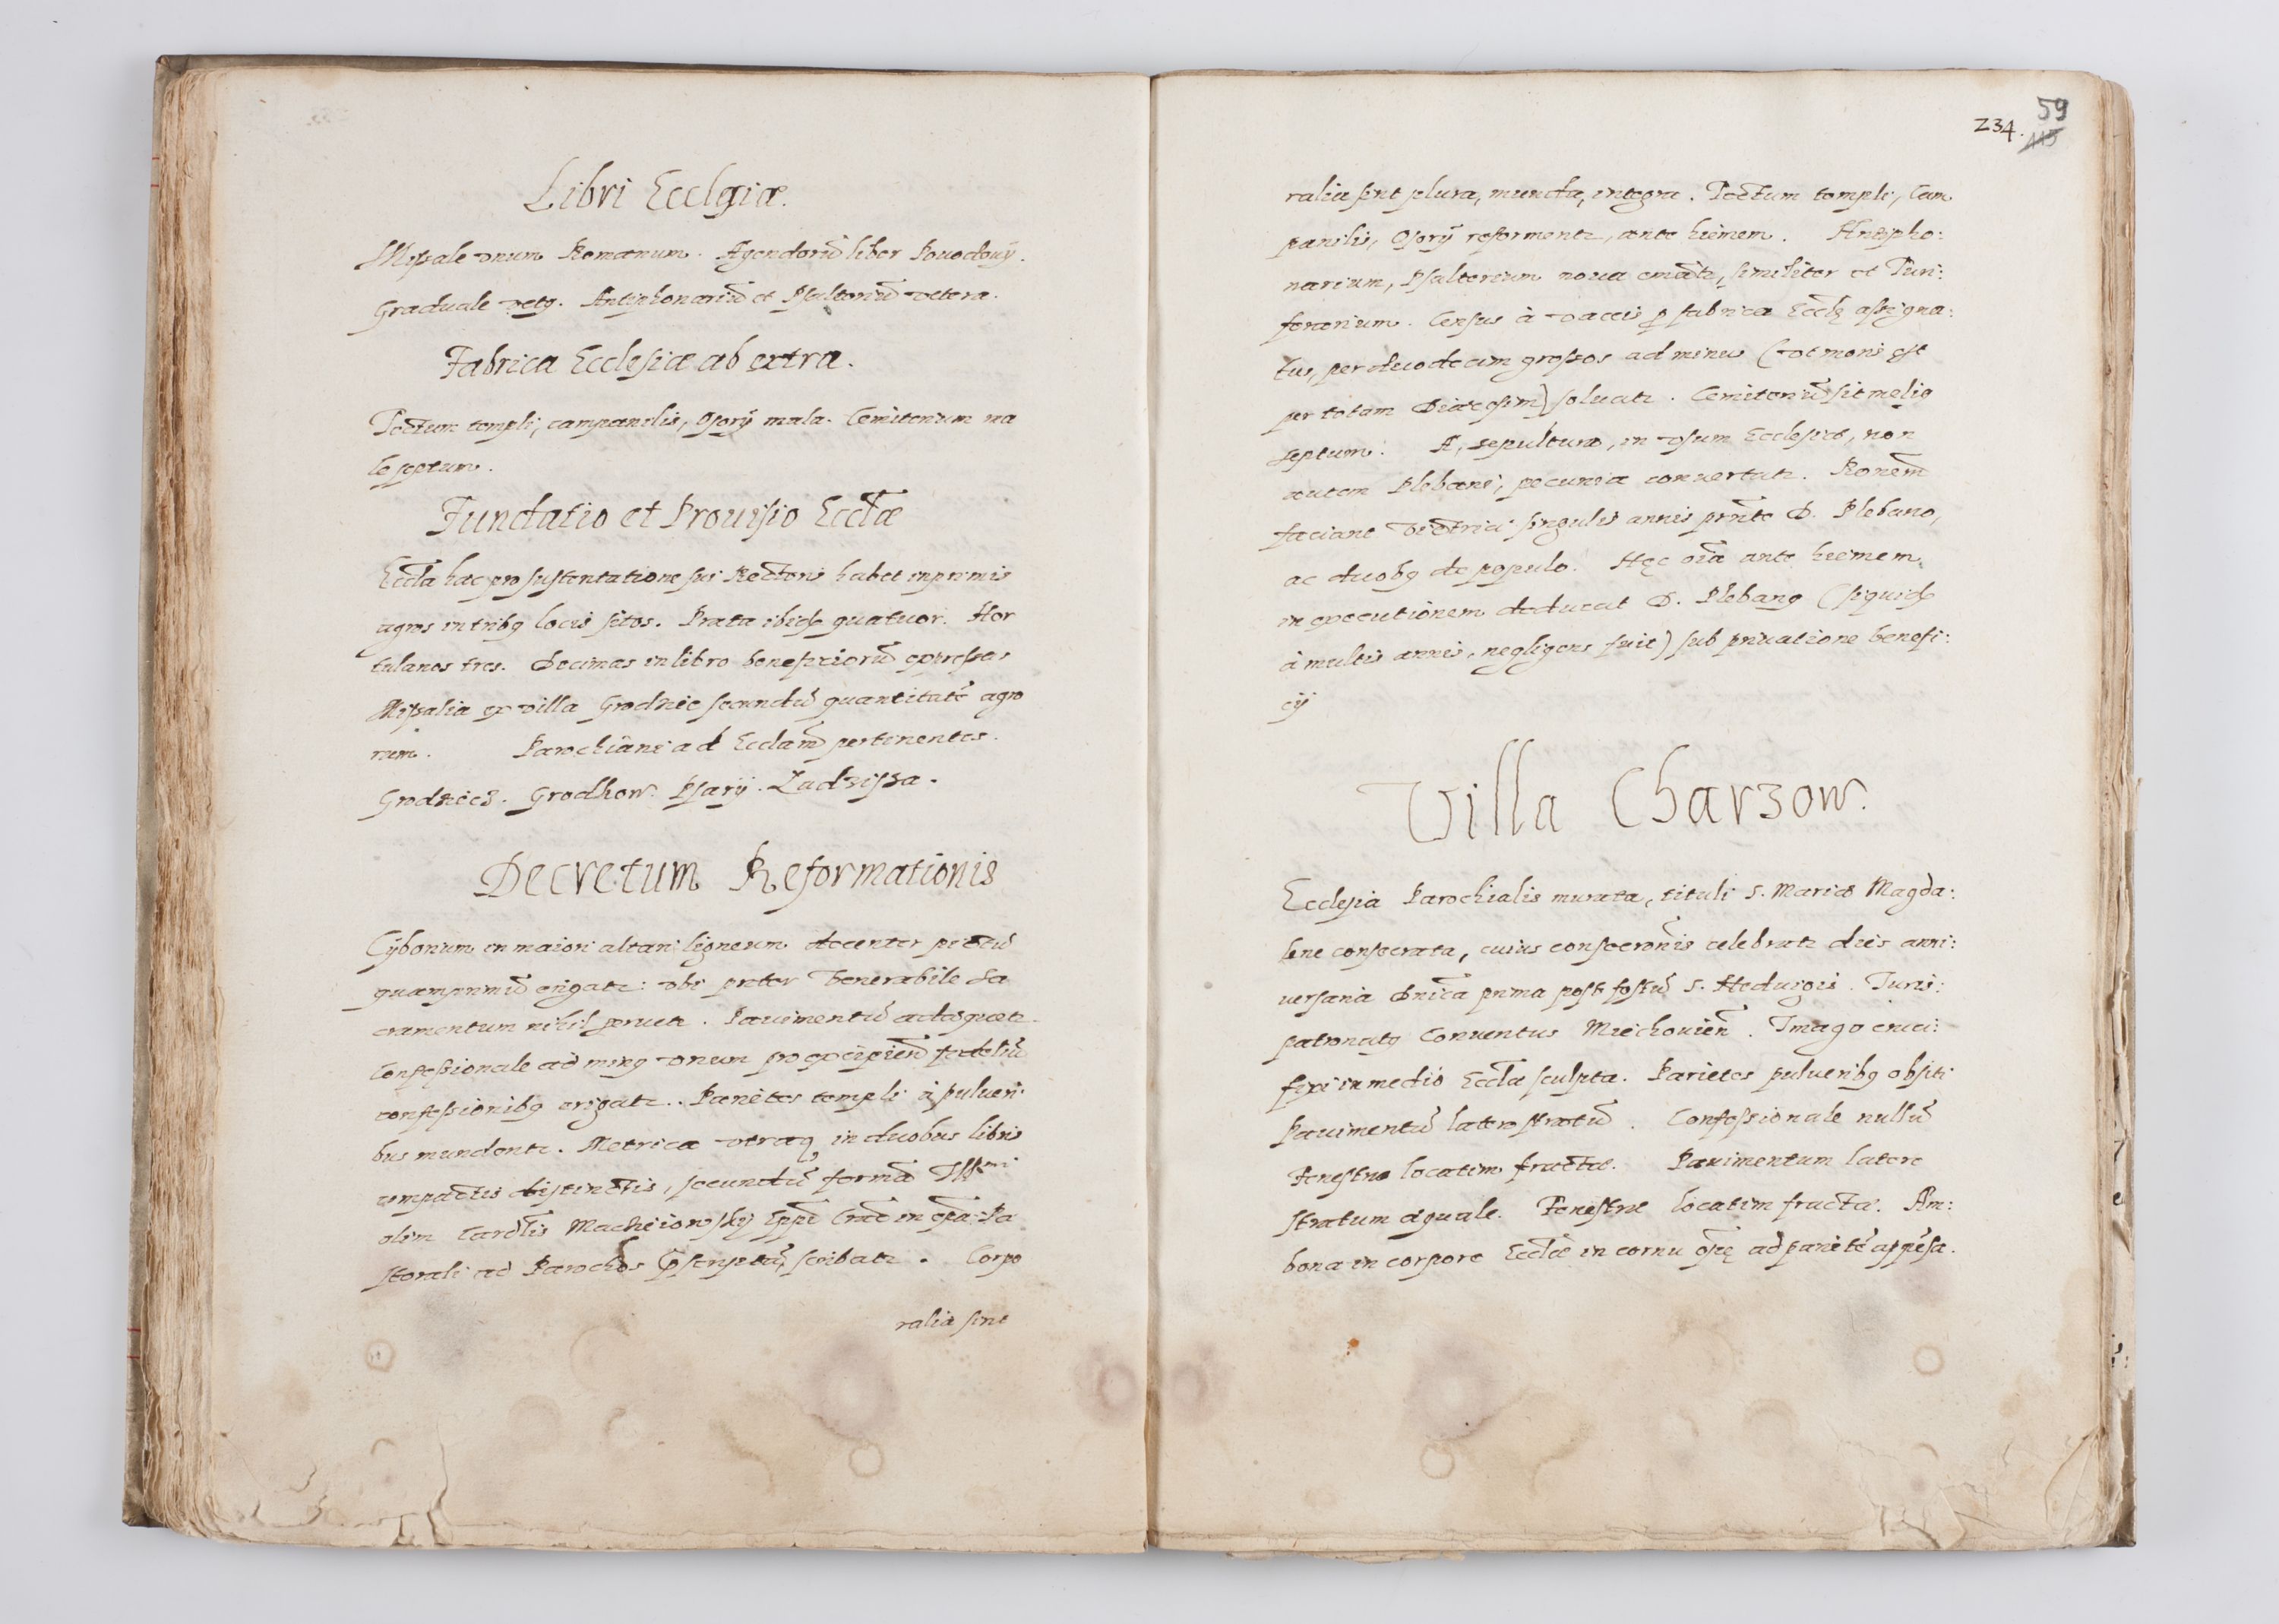 Libri Ecclgiæ.
Missale vnum Romanum. Agendorũ liber Pouodouÿ.
Graduale vetꝰ. Antiphonariũ et Psalteriũ vetera.
Fabrica Ecclesiæ ab extra.
Tectum templi, campanilis, Ossorÿ mala. Cemiterium ma
le septum.
Fundatio et Prouisio Eccl̃æ
Eccl̃a hæc pro sustentatione sui Rectoris habet inprimis
agros in tribꝰ locis sitos. Prata ibidẽ quatuor. Hor
tulanos tres. Decimas in libro beneficiorũ expressas
Missalia ex villa Grodziec secundũ quantitatẽ agro
rum. Parochiani ad Ecclam̃ pertinentes.
Grodziecz. Grodkow. Psarÿ. Ladzissa.
Decretum Reformationis
Cÿborium in maiori altari ligneum decenter pictũ
quamprimũ erigatr: vbi præter Venerabile Sa
cramentum nihil seruetr. Pauimentũ adæquetr.
Confessionale ad minꝰ vnum pro excipiend̃ fideliũ
confessionibꝰ erigatr. Parietes templi à pulueri
bus mundentr. Metrica vtraqꝫ in duobus libris
compactis distinctis, secundũ formã Illmi
olim Cardl̃is Macieiowskÿ Epp̃i Crac̃ in ep̃la Pa
storali ad Parochos p̃scriptã, scribatr. Corpo
ralia sint
234. 59
115
ralia sint plura, munda, integra. Tectum templi, Cam
panilis, Ossorÿ reformentr, ante hiemem. Antipho:
narium, Psalterium noua emãtr, similiter et Turi:
ferarium. Census à vaccis ꝓ fabrica Eccl̃ę assigna:
tus, per duodecim grossos ad minus (vt moris est
per totam Diæcesim) soluatr. Cemiteriũ sit meliꝰ
septum. A, sepultura, in vsum Ecclesiæ, non
autem Plebani, pecunia conuertatr. Ronem̃
faciant Vitrici singulis annis prñte D. Plebano,
ac duobꝰ de populo. Hęc oĩa ante hiemem,
in executionem deducat D. Plebanꝰ (siquidẽ
à multis annis, negligens fuit) sub priuatione benefi:
cÿ
Villa Charzow.
Ecclesia Parochialis murata, tituli S. Mariæ Magda:
lene consecrata, cuius consecrõnis celebratr dies anni:
uersaria Dñica prima post festũ S. Heduigis. Juris:
patronatꝰ Conuentus Miechouień. Imago cruci:
fixi in medio Eccl̃æ sculpta. Parietes pulueribꝰ obsiti
Pauimentũ latere stratũ. Confessionale nullũ
Fenestræ locatim fractæ. Pauimentum latere
stratum æquale. Fenestræ locatim fractæ. Am:
bona in corpore Eccl̃æ in cornu ad parietẽ appẽsa.